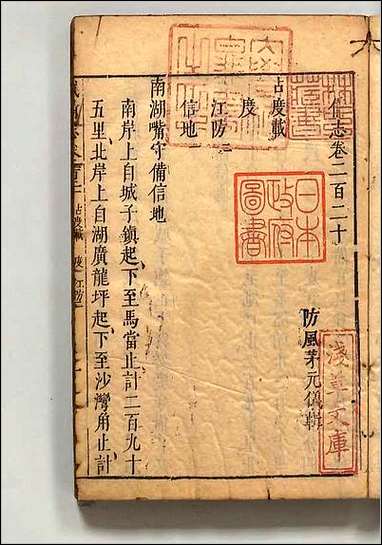 備志卷二百二十
防風茅元儀輯
占度載
度
江防二
信地
南湖嘴守備信地
南岸上自城子鎮起下至馬當止計二百九十
五里北岸上自湖廣龍坪起下至沙灣角止計
日本
政府
圖書
淺草文庫